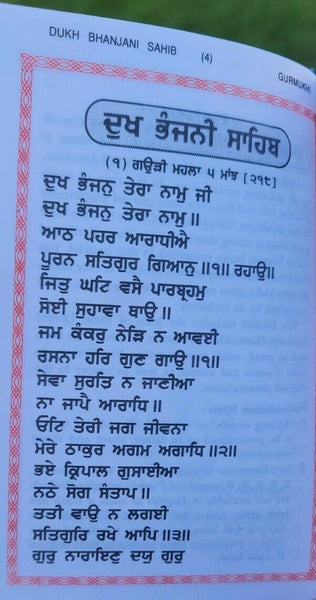 DUKH BHANJANI SAHIB (4) GURMUKHI
ਦੁਖ ਭੰਜਨੀ ਸਾਹਿਬ
(੧) ਗਉੜੀ ਮਹਲਾ ੫ ਮਾਂਝ [੨੧੮]
ਦੁਖ ਭੰਜਨੁ ਤੇਰਾ ਨਾਮੁ ਜੀ
ਦੁਖ ਭੰਜਨੁ ਤੇਰਾ ਨਾਮੁ ॥
ਆਠ ਪਹਰ ਆਰਾਧੀਐ
ਪੂਰਨ ਸਤਿਗੁਰ ਗਿਆਨੁ ॥੧॥ ਰਹਾਉ॥
ਜਿਤੁ ਘਟਿ ਵਸੈ ਪਾਰਬ੍ਰਹਮੁ
ਸੋਈ ਸੁਹਾਵਾ ਥਾਉ ॥
ਜਮ ਕੰਕਰੁ ਨੇੜਿ ਨ ਆਵਈ
ਰਸਨਾ ਹਰਿ ਗੁਣ ਗਾਉ ॥੧॥
ਸੇਵਾ ਸੁਰਤਿ ਨ ਜਾਣੀਆ
ਨਾ ਜਾਪੈ ਆਰਾਧਿ ॥
ਓਟਿ ਤੇਰੀ ਜਗ ਜੀਵਨਾ
ਮੇਰੇ ਠਾਕੁਰ ਅਗਮ ਅਗਾਧਿ ॥੨॥
ਭਏ ਕ੍ਰਿਪਾਲ ਗੁਸਾਈਆ
ਨਠੇ ਸੋਗ ਸੰਤਾਪ ॥
ਤਤੀ ਵਾਉ ਨ ਲਗਈ
ਸਤਿਗੁਰਿ ਰਖੇ ਆਪਿ ॥੩॥
ਗੁਰੁ ਨਾਰਾਇਣੁ ਦਯੁ ਗੁਰੁ